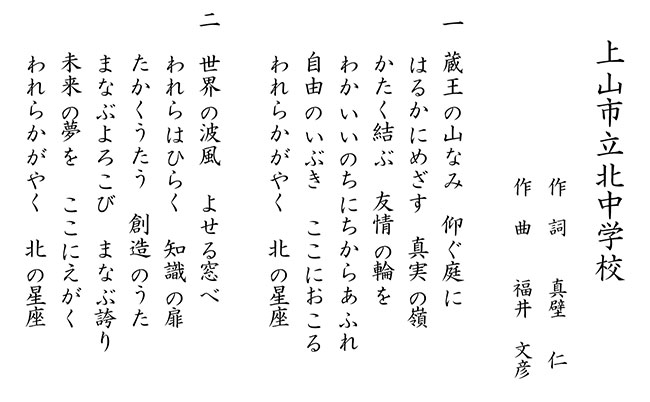 上山市立北中学校
作詞　真壁　仁
作曲　福井　文彦
一　蔵王の山なみ　仰ぐ庭に
はるかにめざす　真実の嶺
かたく結ぶ　友情の輪を
わかいいのちにちからあふれ
自由のいぶき　ここにおこる
われらかがやく　北の星座
二　世界の波風　よせる窓べ
われらはひらく　知識の扉
たかくうたう　創造のうた
まなぶよろこび　まなぶ誇り
未来の夢を　ここにえがく
われらかがやく　北の星座